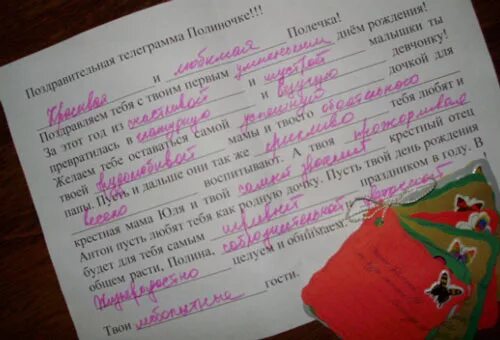 Поздравительная телеграмма Полиночке!!!
Красивая и любимая Полечка!
Поздравляем тебя с твоим первым днём рождения!
За этот год из счастливой и шустрой малышки ты
превратилась в и ведущую девчонку!
Желаем тебе оставаться самой успешной дочкой для
твоей трудолюбивой мамы и твоего обаятельного
папы. Пусть и дальше они так же красиво тебя любят и
весело воспитывают. А твоя прожорливая
крестная мама Юля и твой крестный отец
Антон пусть любят тебя как родную дочку. Пусть твой день рождения
будет для тебя самым игривым праздником в году. В
общем расти, Полина, соблазнительной,
Жизнерадостно целуем и обнимаем.
Твои любопытные гости.